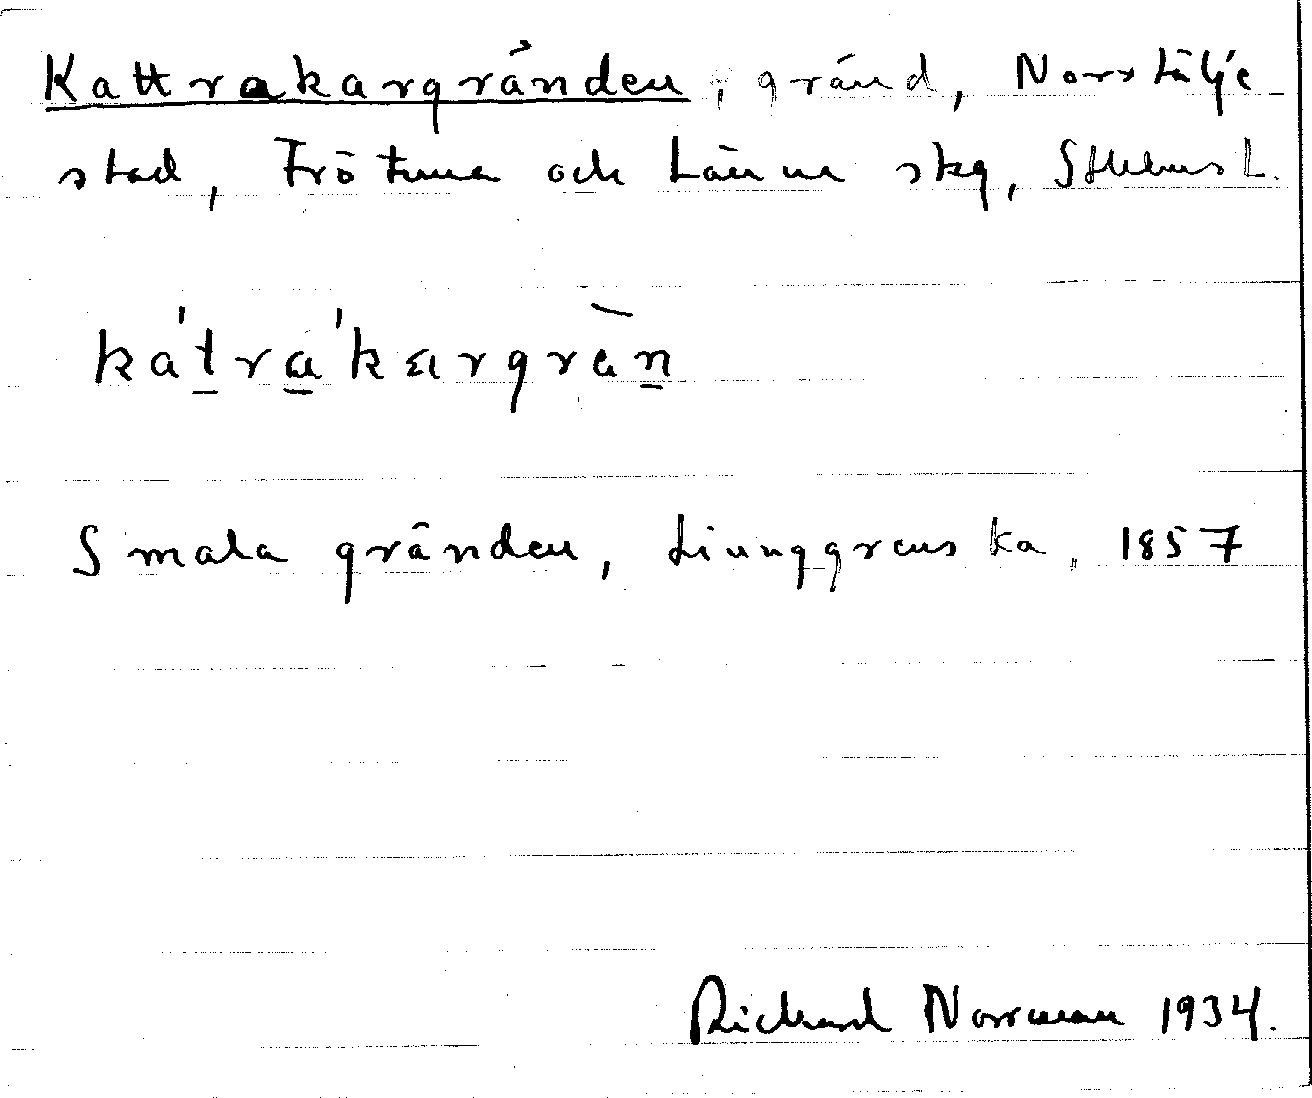 Kattrakargränden, gränd, Norrtälje
stad, Frötuna och Länna skg, Sthlms L.
ka't̲ra̲'kargràn̲
Smala gränden, Ljunggrenska, 1857
Rickard Norrman 1934.